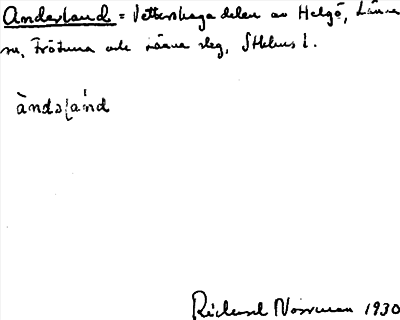 Anderland = Vettershaga delen av Helgö, Länna
sn, Frötuna och Länna slg, Sthlms l.
àndəḷa̍nd
Richard Norrman 1930